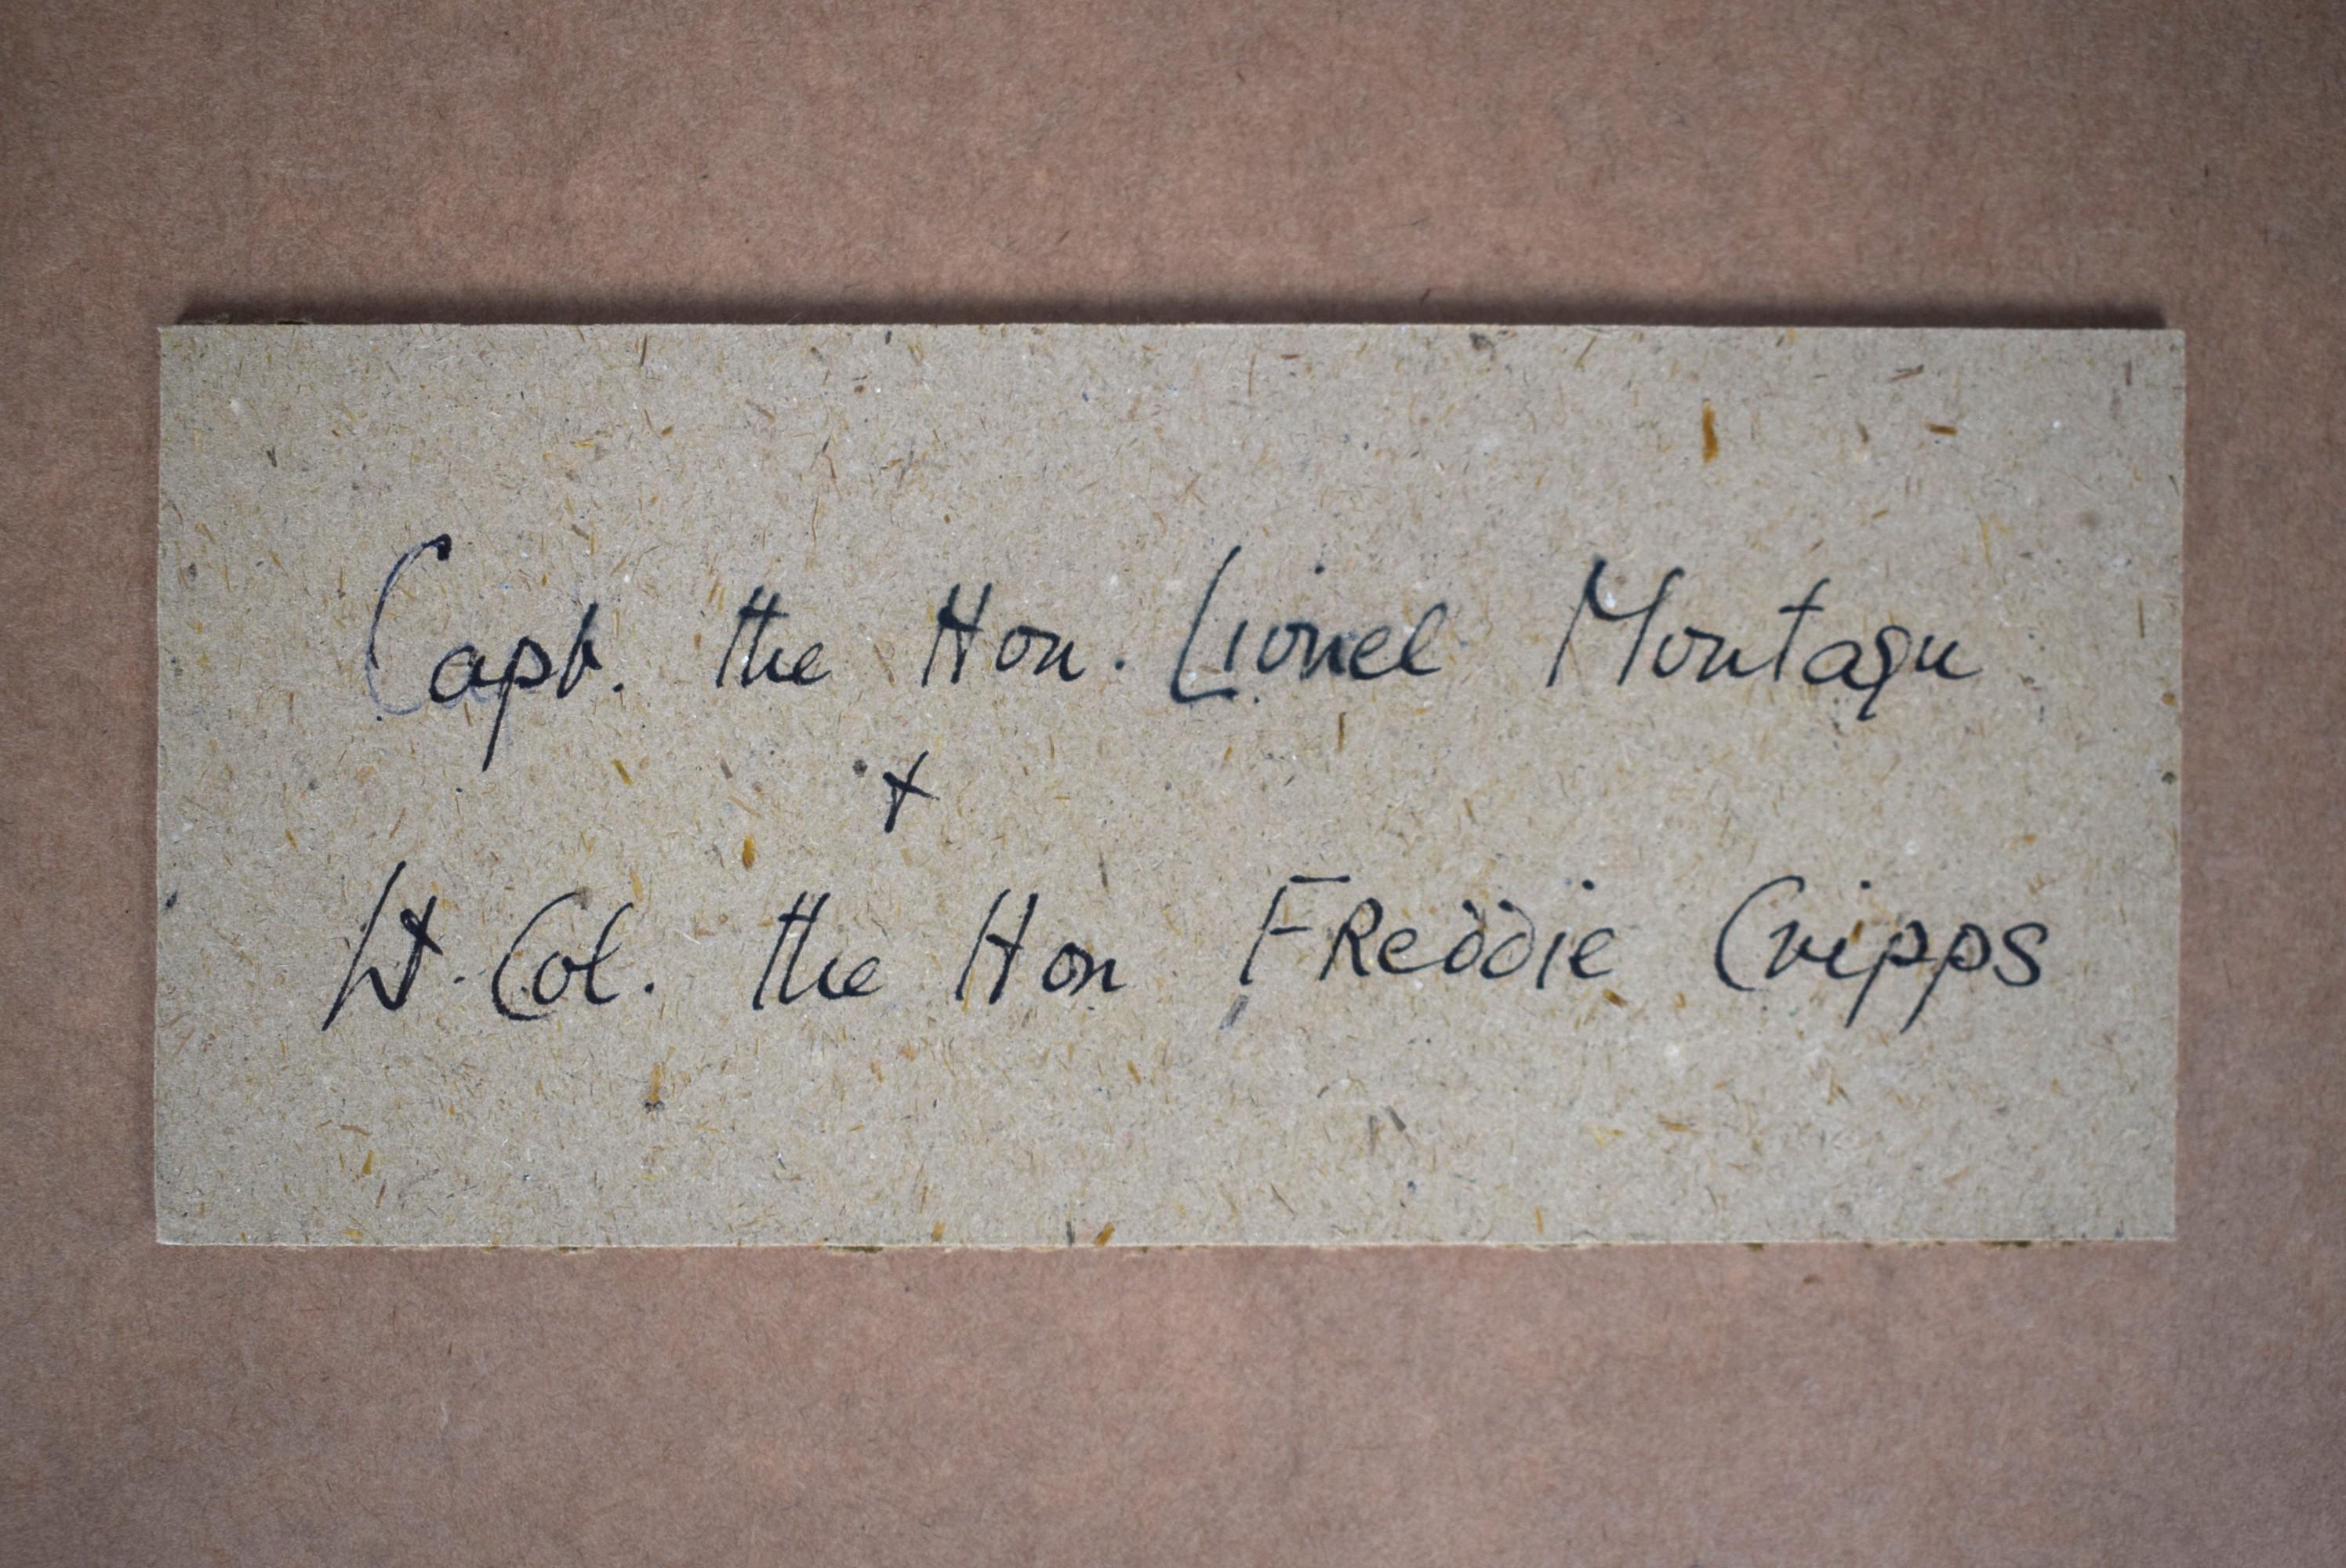 Capt. the Hon. Lionel Montagu
+
Lt. Col. the Hon Freddie Cripps